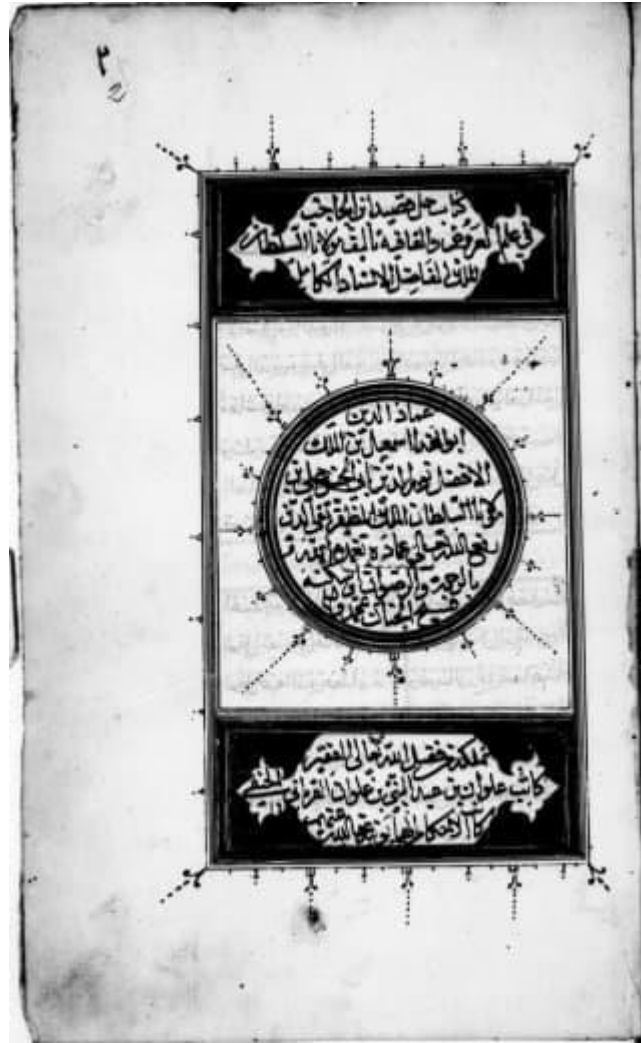 ٣
كتاب حل قصيد ابن الحاجب
في علم العروض والقافيه تأليف مولانا السلطان
الملك الفاضل الاستاذ الكامل
عماد الدين
ابو الفدا اسمعيل بن الملك
الافضل نور الدين ابي الحسن علي بن
مولانا السلطان الملك المظفر تقي الدين
نفع الله تعالى تغمده الله
بالرحمة والرضوان واسكنه
فسيح الجنان
تملكه بفضل الله تعالى الفقير
كاتبه علوان بن عبد النبي بن علوان القرماني الحنفي
عفي عنهم